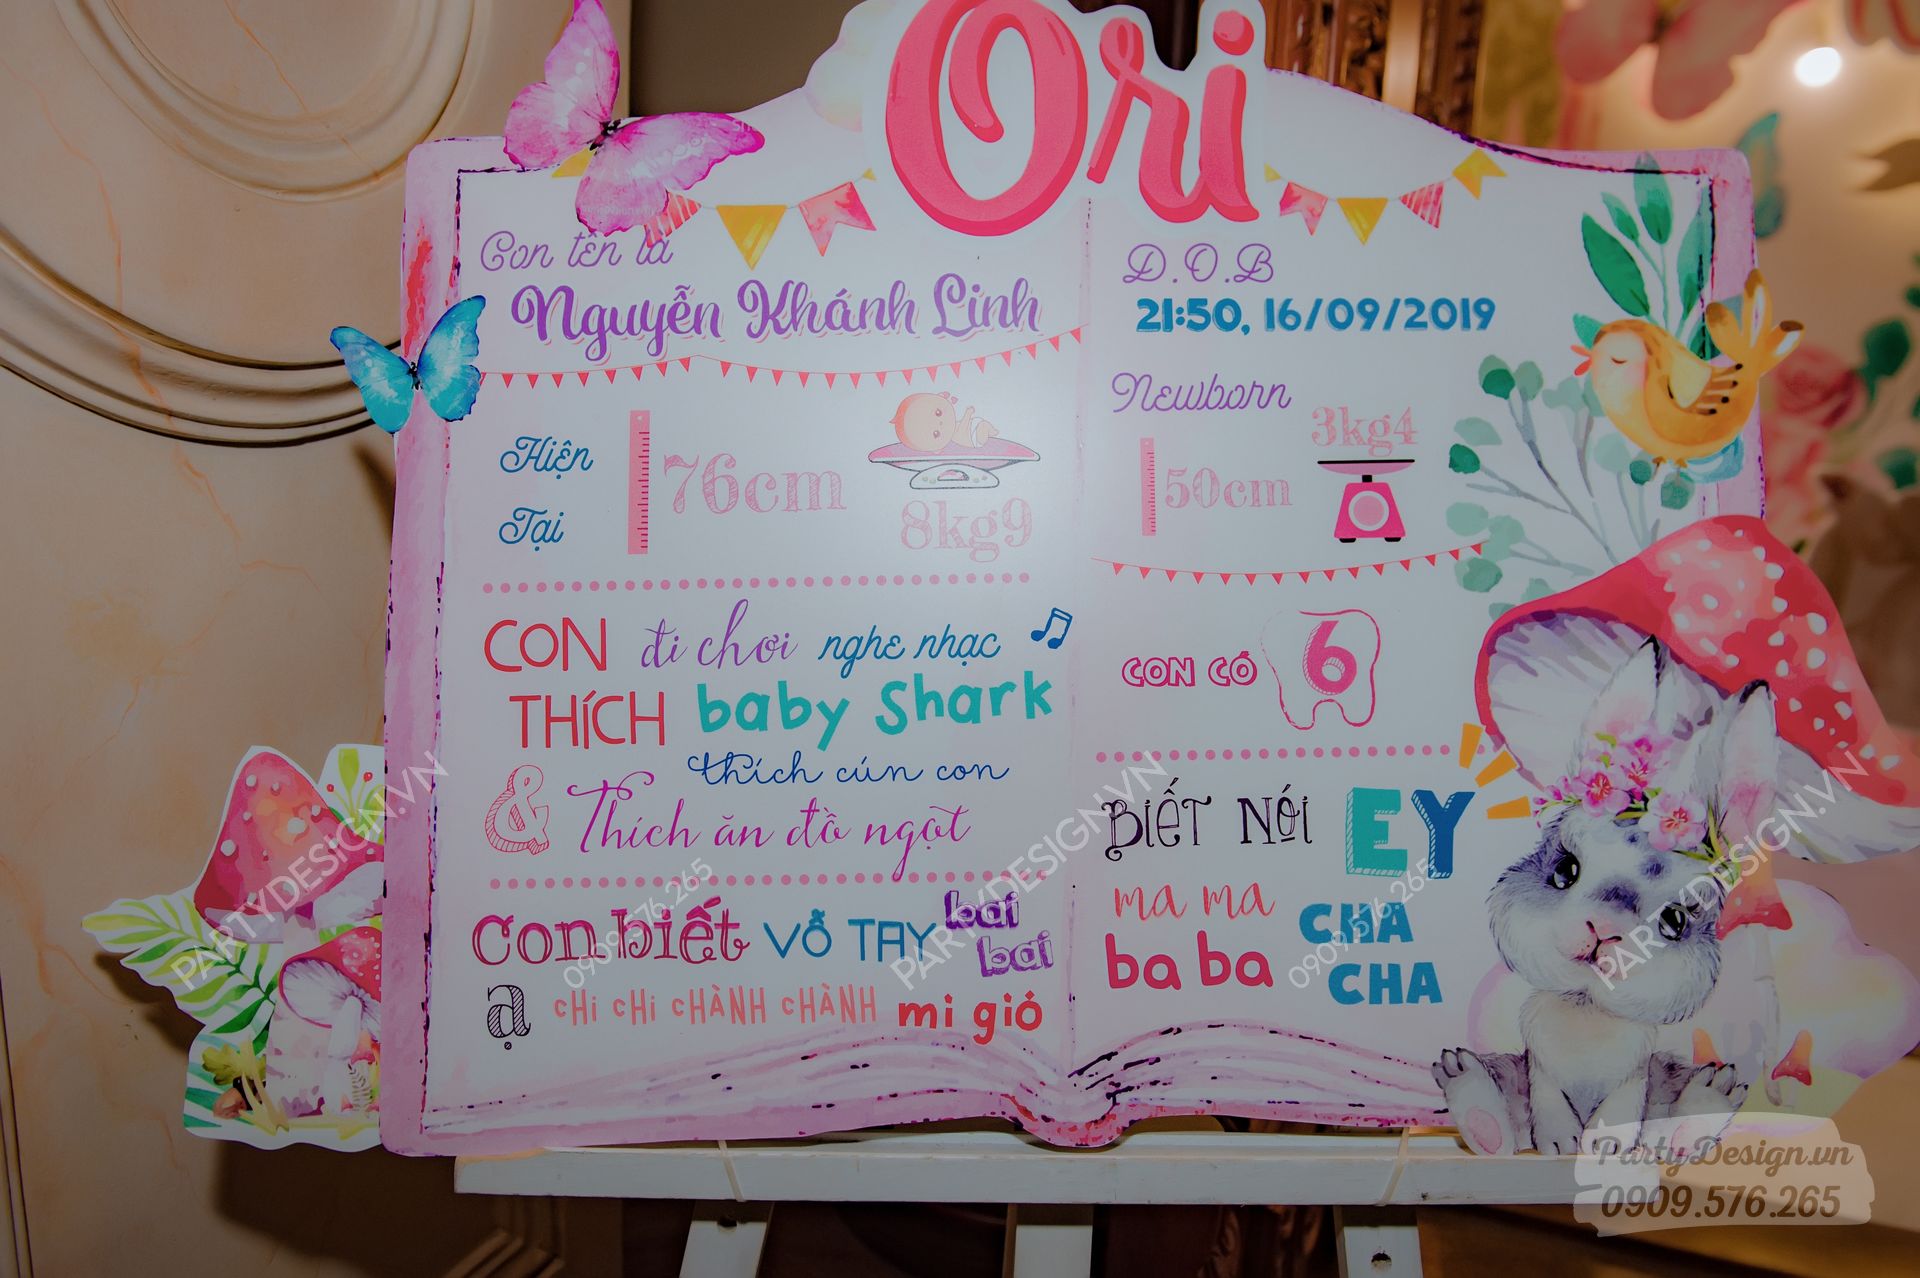 Ori
Con tên là
Nguyễn Khánh Linh
Hiện
Tại
76cm
8kg9
CON đi chơi nghe nhạc
THÍCH baby Shark
thích cún con
& Thích ăn đồ ngọt
Con biết VỖ TAY bai bai
ạ CHI CHI CHÀNH CHÀNH mi gió
D.O.B
21:50, 16/09/2019
Newborn
3kg4
50cm
CON CÓ 6
BIẾT NÓI EY
ma ma
ba ba
CHA
CHA
PARTYDESIGN.VN
0909.576.265
PARTYDESIGN.VN
0909.576.265
PARTYDESIGN.VN
PartyDesign.vn
0909.576.265